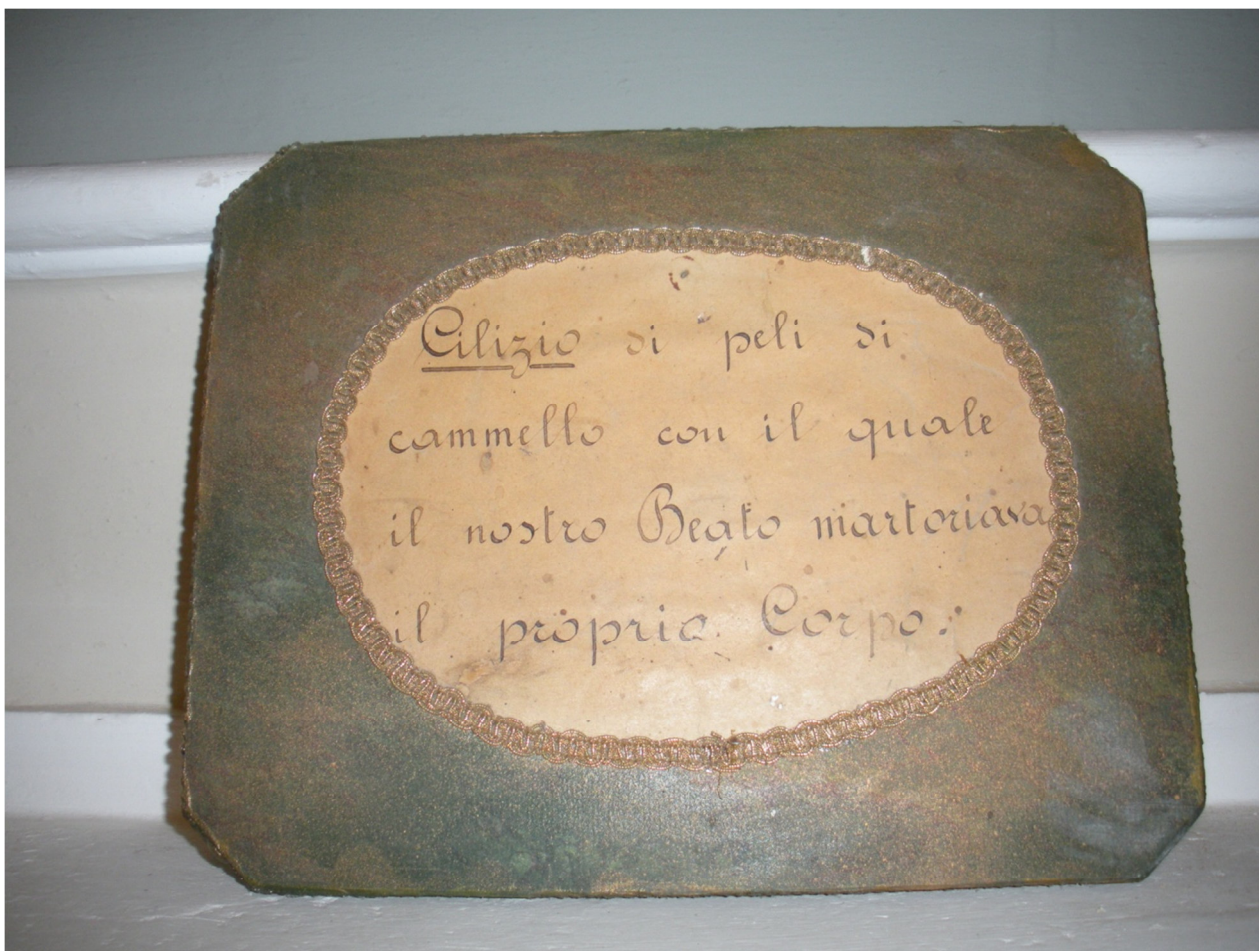 Cilizio di peli di
cammello con il quale
il nostro Beato martoriava
il proprio Corpo.